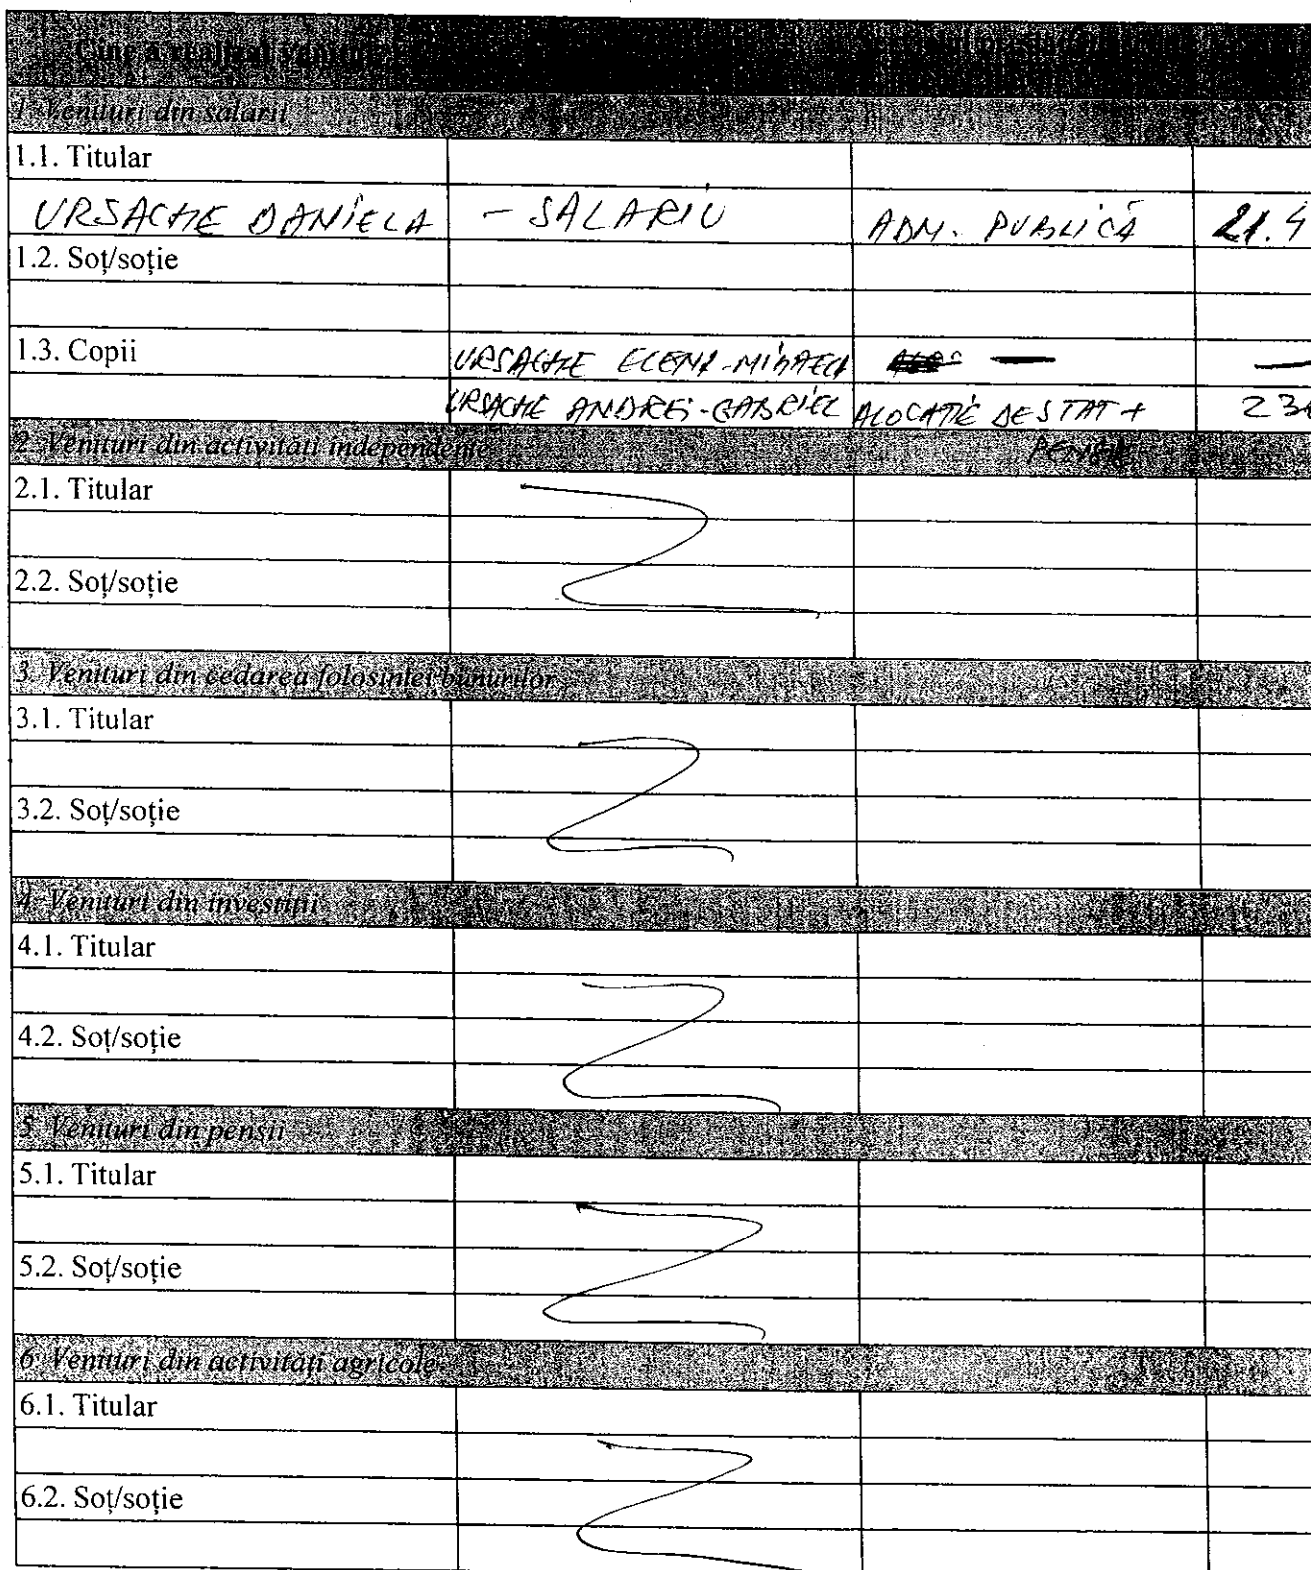 Cine a realizat venitul
1. Venituri din salarii
1.1. Titular
URSACHE DANIELA - SALARIU ADM. PUBLICĂ 21.4
1.2. Soț/soție
1.3. Copii URSACHE ELENA-MIHAELA — —
URSACHE ANDREI-GABRIEL ALOCATIE DE STAT + 23
2. Venituri din activități independente PENSIE
2.1. Titular
2.2. Soț/soție
3. Venituri din cedarea folosinței bunurilor
3.1. Titular
3.2. Soț/soție
4. Venituri din investiții
4.1. Titular
4.2. Soț/soție
5. Venituri din pensii
5.1. Titular
5.2. Soț/soție
6. Venituri din activități agricole
6.1. Titular
6.2. Soț/soție